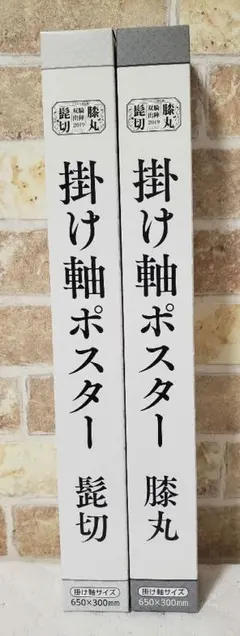 髭切
双騎出陣
2019
膝丸
掛け軸ポスター 髭切
掛け軸サイズ
650×300mm
髭切
双騎出陣
2019
膝丸
掛け軸ポスター 膝丸
掛け軸サイズ
650×300mm